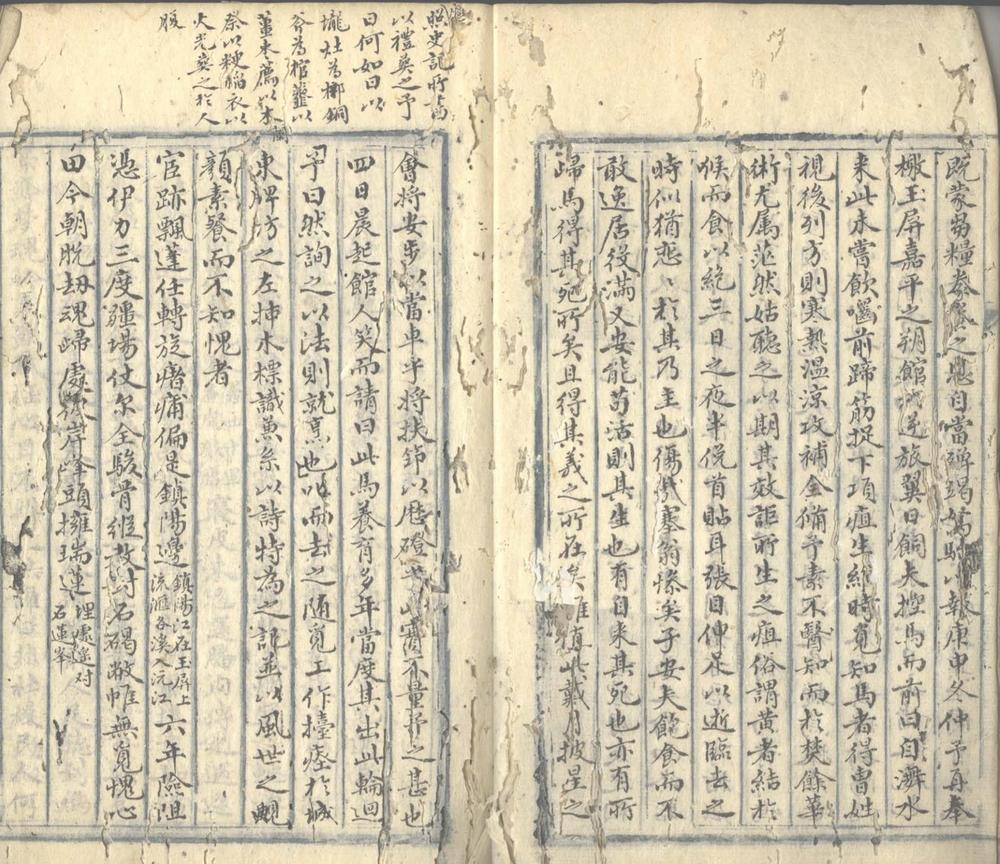 既蒙芻糧豢養之恩自當殫竭駑駘以報庚申冬仲予再奉
檄玉屏嘉平之朔館於逆旅翼日飼夫捏馬而前曰自濟水
来此未嘗飲囓前蹄筋捉下項疽生維時覓知馬者得曹姓
視後列方則寒熱溫涼攻補全備予素不醫知而於焚餘華
術尤属茫然姑聽之以期其效詎所生之疽俗謂黄者結於
喉而食以絶三日之夜半俛首貼耳張目伸足以逝臨去之
時似猶戀戀於其乃主也傷哉塞翁慘矣子安夫飽食而不
敢逸居役滿又安能苟活則其生也有自来其死也亦有所
歸馬得其死所矣且得其義之所在矣誰道此戴月披星之
會將安步以當車乎將扶節以歷磴乎此實不量予之甚也
四日晨起館人笑而請曰此馬養育多年當度其出此輪迴
予曰然詢之以法則就烹也叱而去之随覓工作擡瘞於城
東牌坊之左揷木標識兼系以詩特為之記並以風世之靦
顏素餐而不知愧者
宦跡飄蓬任轉旋瘏痡偏是鎮陽邊
鎮陽江在玉屏上
流滙各溪入沅江
六年險阻
憑伊力三度疆場仗尔全駿骨縱教封石碣敝帷無覓愧心
田今朝脫刼魂歸處後岸峰頭擁瑞蓮
埋處遥对
石蓮峯
照史記所畜
以禮葬之予
曰何如曰以
壠灶為槨銅
谷為棺齏以
薑木薦以木
祭以粳稻衣以
火光葬之於人
腹